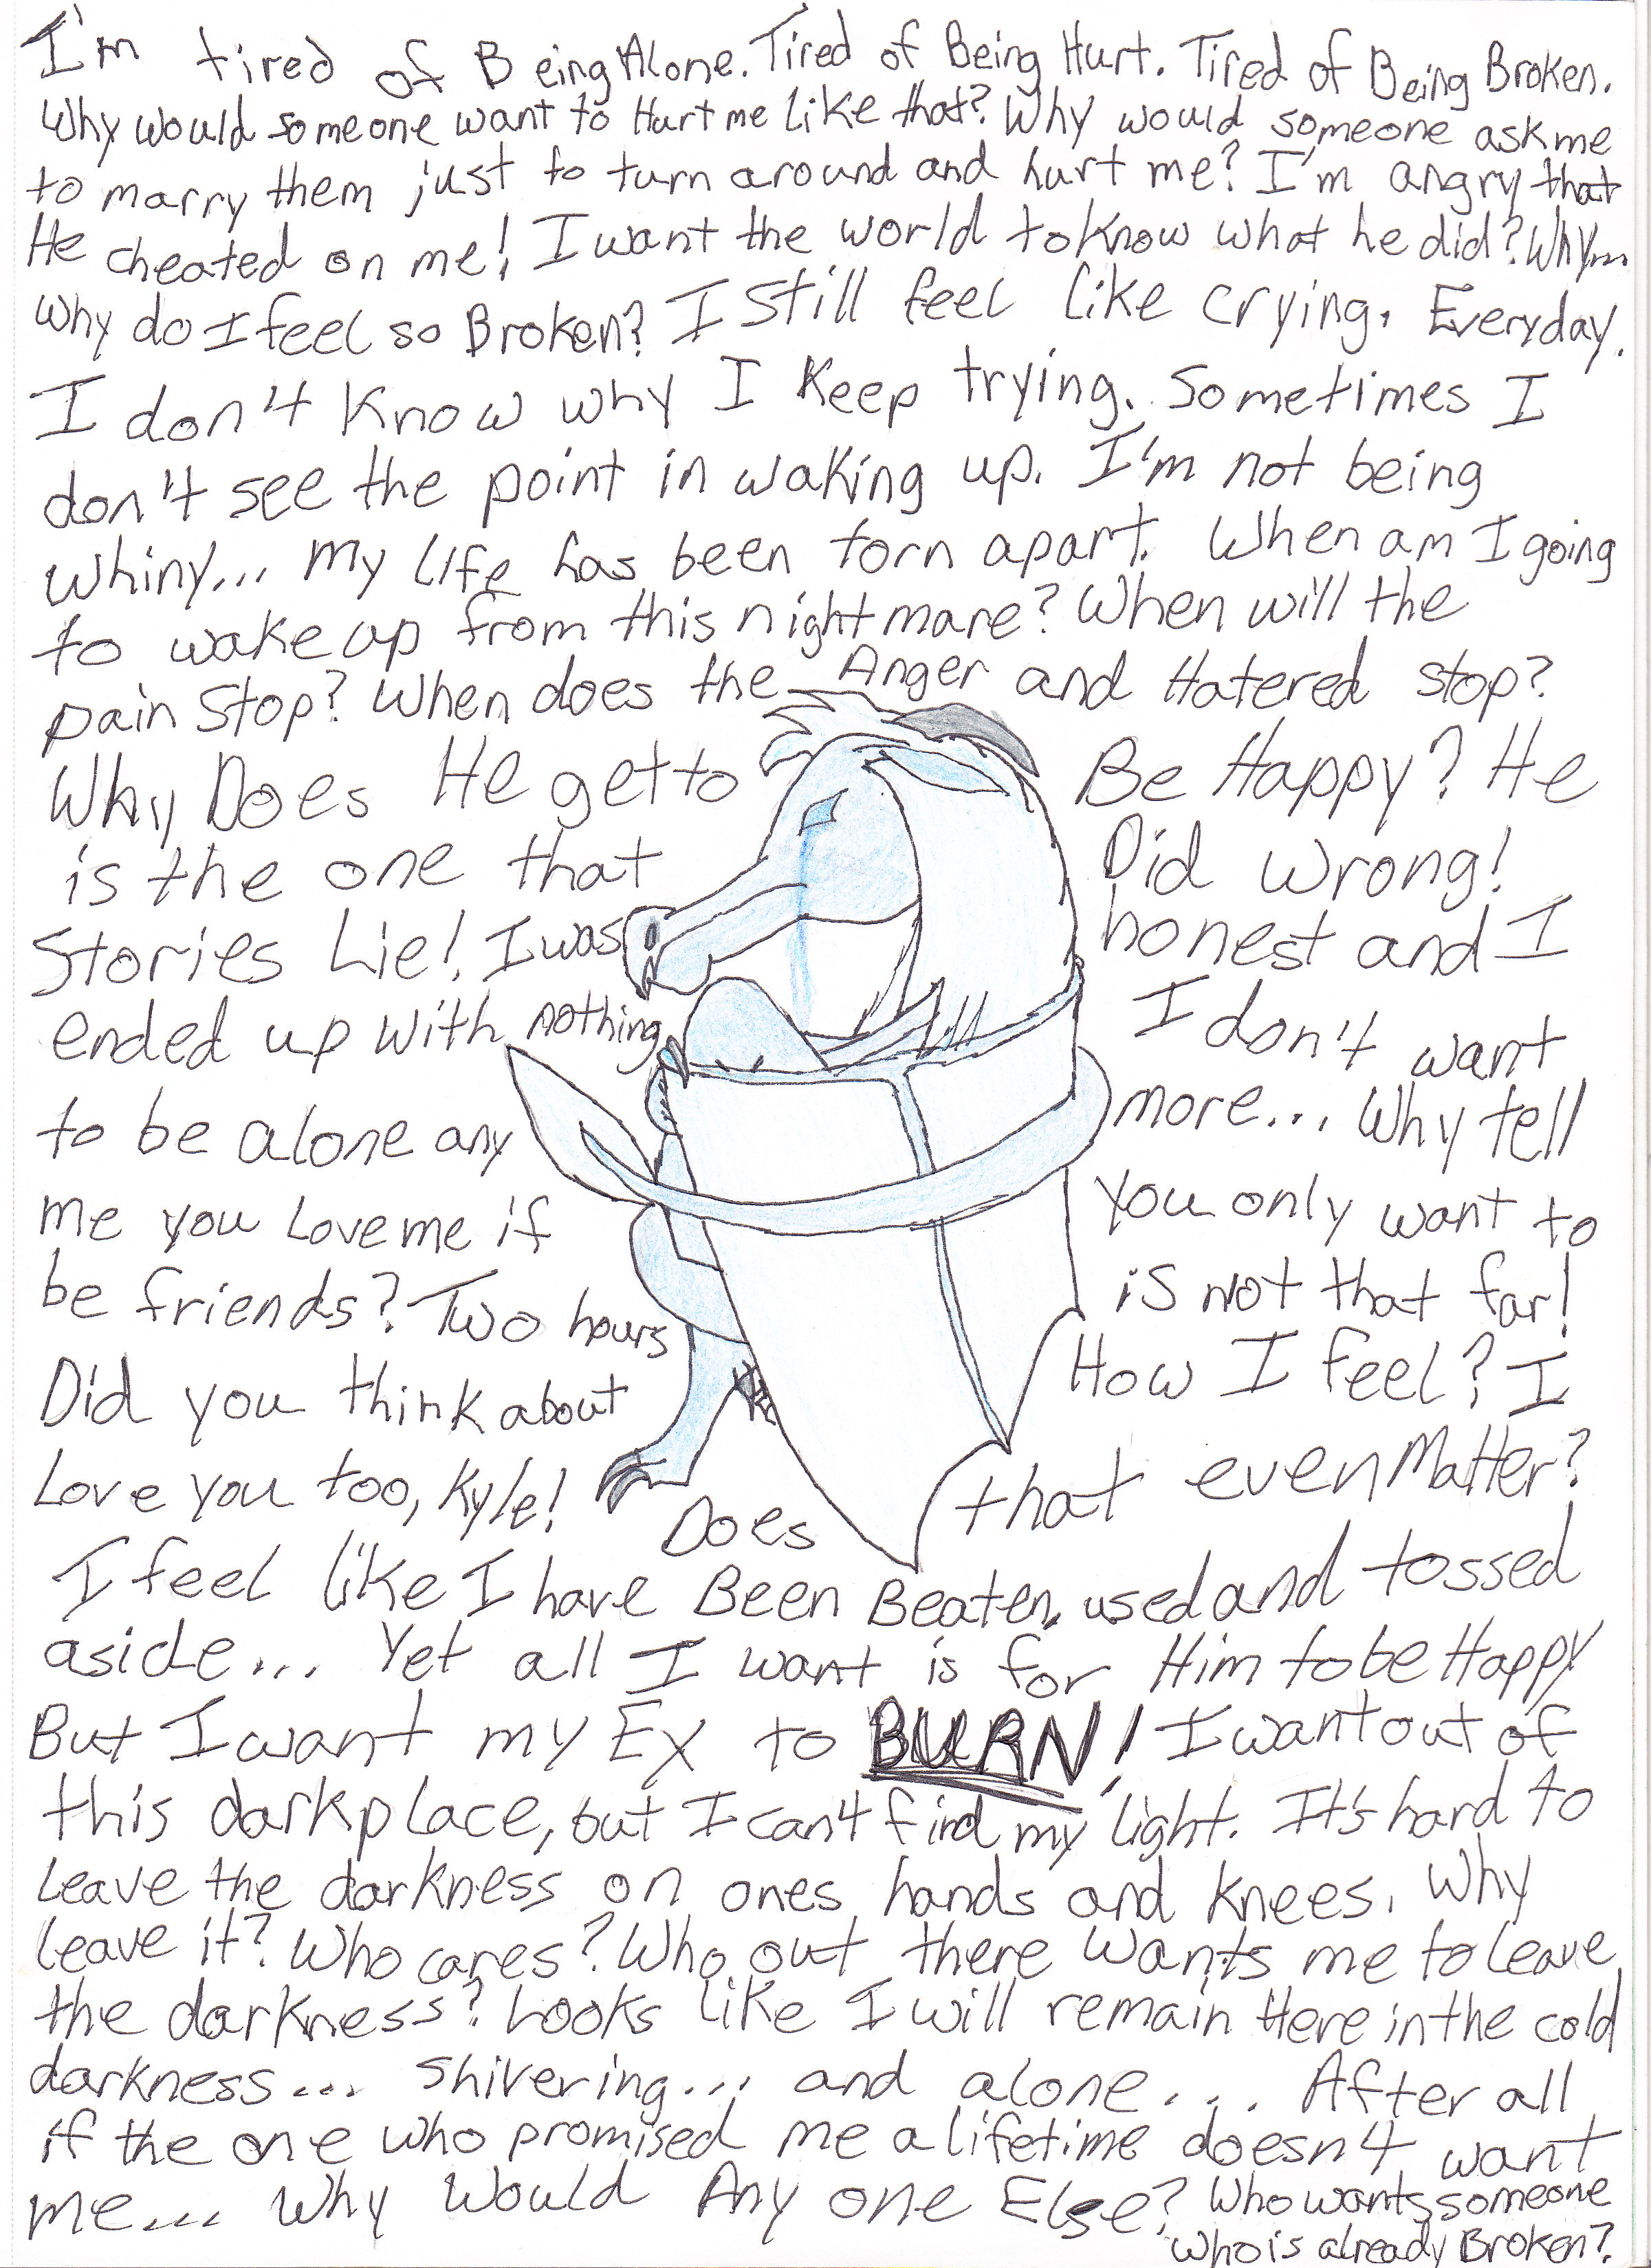 I'm tired of Being Alone. Tired of Being Hurt. Tired of Being Broken.
Why would someone want to Hurt me like that? Why would someone ask me
to marry them just to turn around and hurt me? I'm angry that
He cheated on me! I want the world to know what he did? Why...
why do I feel so Broken? I still feel like crying. Everyday.
I don't know why I keep trying. Sometimes I
don't see the point in waking up. I'm not being
whiny... my life has been torn apart. When am I going
to wake up from this nightmare? When will the
pain stop? When does the Anger and Hatered stop?
Why Does He get to Be Happy? He
is the one that Did wrong!
Stories Lie! I was honest and I
ended up with nothing I don't want
to be alone any more... Why tell
me you love me if you only want to
be friends? Two hours is not that far!
Did you think about How I feel? I
Love you too, Kyle! Does that even Matter?
I feel like I have Been Beaten, used and tossed
aside... Yet all I want is for Him to be Happy
But I want my Ex to BURN! I want out of
this dark place, but I can't find my light. It's hard to
leave the darkness on ones hands and knees. Why
leave it? Who cares? Who out there wants me to leave
the darkness? Looks like I will remain Here in the cold
darkness... shivering... and alone... After all
if the one who promised me a lifetime doesn't want
me... why would Any one Else? Who wants someone
who is already Broken?